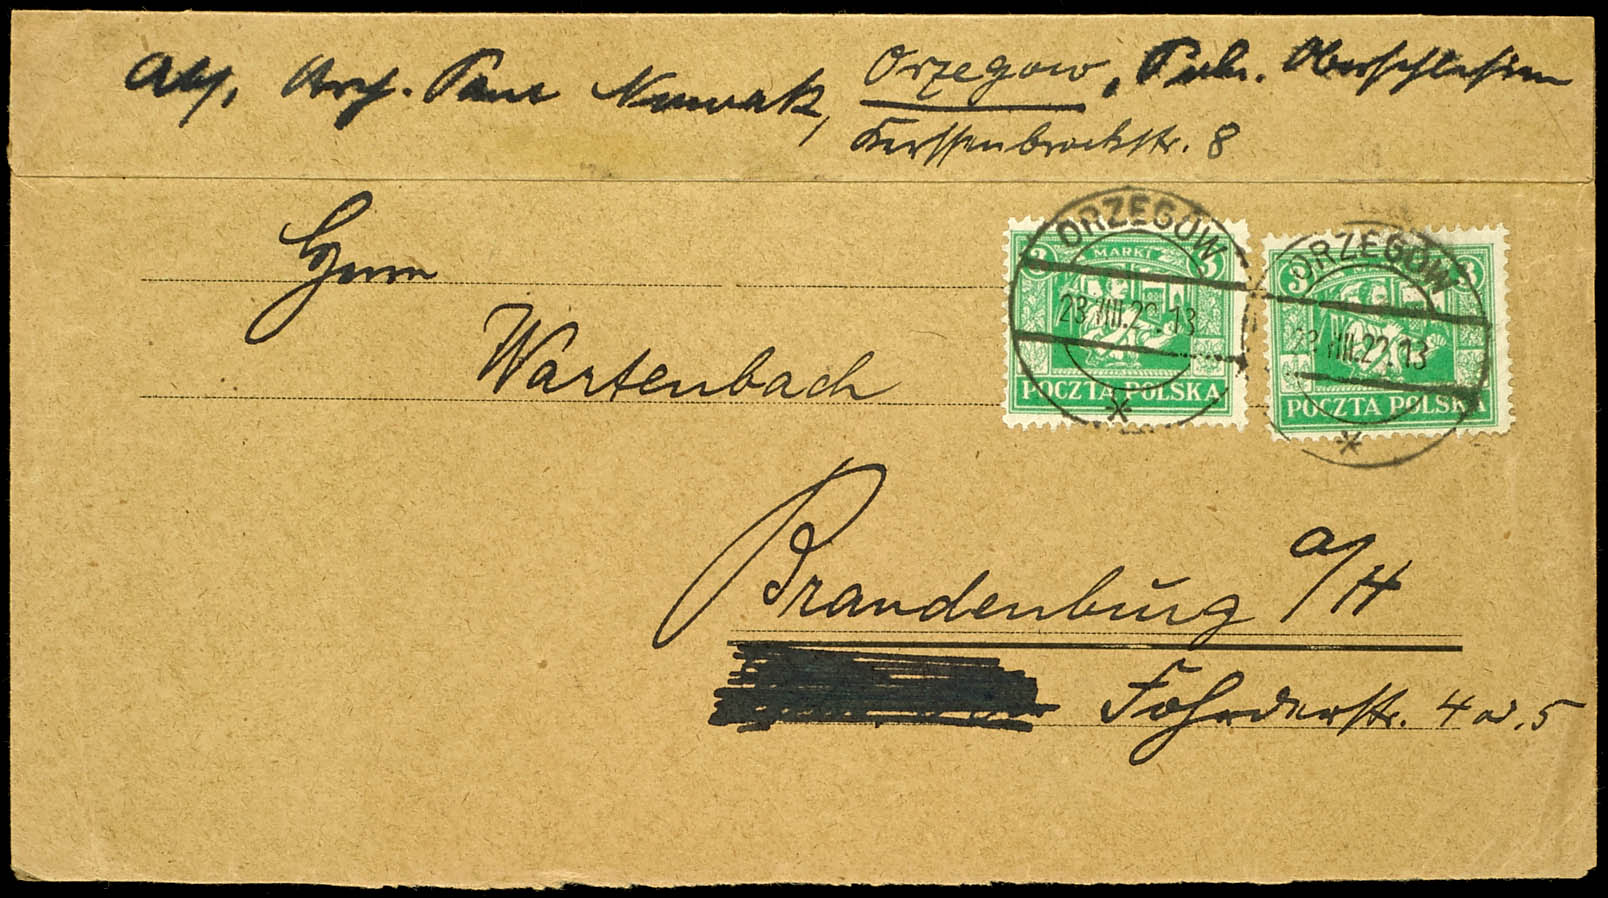 Abs. Paul Nowak, Orzegow, Poln. Oberschlesien
Kerssenbrockstr. 8
Herrn
Wartenbach
Brandenburg a/H
Fohrderstr. 4 od. 5
ORZEGÓW
28.VIII.22.13
3 MARKI 3
POCZTA POLSKA
ORZEGÓW
28.VIII.22.13
3 3
POCZTA POLSKA